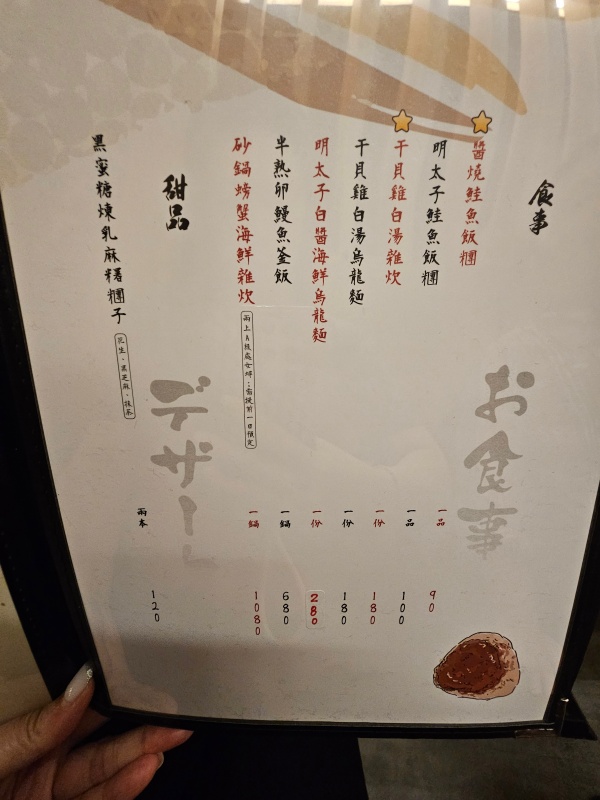 食事
お食事
醬燒鮭魚飯糰 一品 90
明太子鮭魚飯糰 一品 100
干貝雞白湯雜炊 一份 180
干貝雞白湯烏龍麵 一份 180
明太子白醬海鮮烏龍麵 一份 280
半熟卵鰻魚釜飯 一鍋 680
砂鍋螃蟹海鮮雜炊 一鍋 1080
兩上A級處女蟳：需提前一日預定
甜品
デザー
黑蜜糖煉乳麻糬糰子 兩本 120
花生・黑芝麻・抹茶